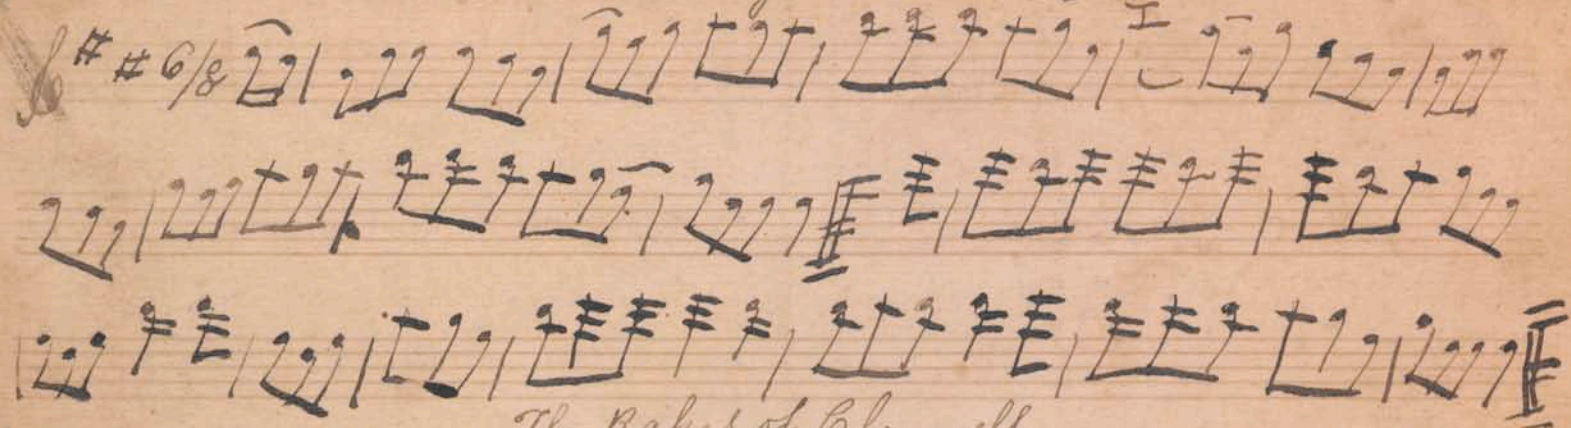 6/8
The Rakes of